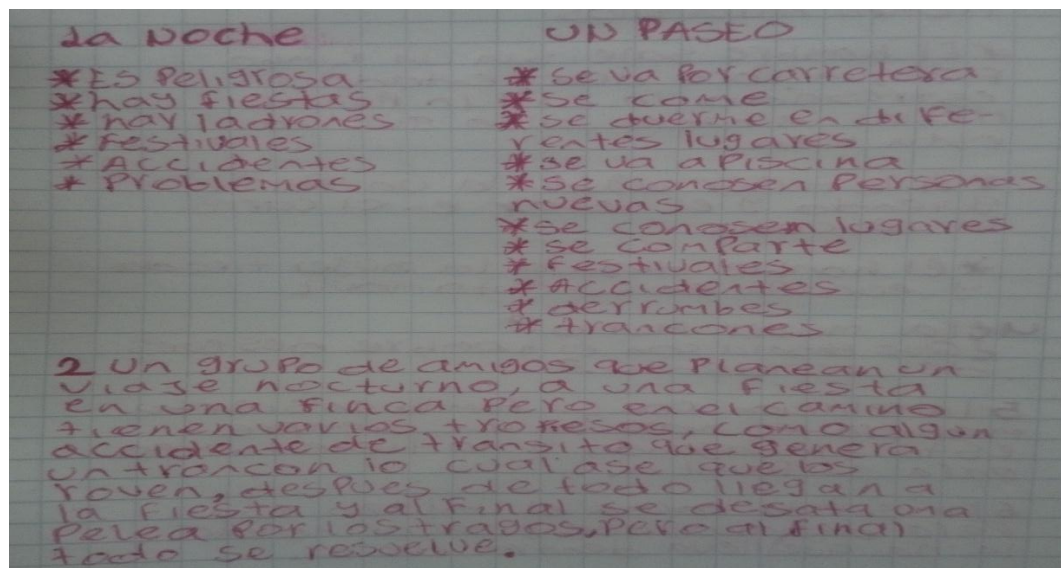 La Noche
* Es Peligrosa
* hay fiestas
* hay ladrones
* Festivales
* Accidentes
* Problemas
UN PASEO
* Se va Por carretera
* Se come
* Se duerme en dife-
rentes lugares
* se va a Piscina
* Se conosen Personas
nuevas
* se conosem lugares
* se comParte
* festivales
* Accidentes
* derrumbes
* trancones
2 Un grupo de amigos que Planean un
viaje nocturno, a una fiesta
en una finca Pero en el camino
tienen varios tropiesos, como algun
accidente de transito que genera
un trancon lo cual ase que los
roven, desPues de todo llegan a
la fiesta y al Final se desata una
Pelea Por los tragos, Pero al final
todo se resuelve.